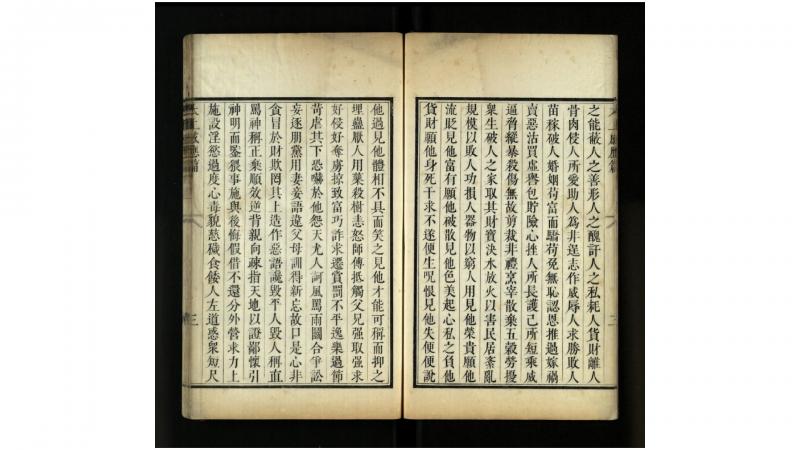 之能蔽人之善形人之醜訐人之私耗人貨財離人
骨肉侵人所愛助人為非逞志作威辱人求勝敗人
苗稼破人婚姻苟富而驕苟免無恥認恩推過嫁禍
賣惡沽買虛譽包貯險心挫人所長護己所短乘威
逼脅縱暴殺傷無故剪裁非禮烹宰散棄五穀勞擾
衆生破人之家取其財寶決水放火以害民居紊亂
規模以敗人功損人器物以窮人用見他榮貴願他
流貶見他富有願他破散見他色美起心私之負他
貨財願他身死干求不遂便生咒恨見他失便便說
他過見他體相不具而笑之見他才能可稱而抑之
埋蠱厭人用藥殺樹恚怒師傅抵觸父兄强取强求
好侵好奪虜掠致富巧詐求遷賞罰不平逸樂過節
苛虐其下恐嚇於他怨天尤人訶風罵雨鬬合爭訟
妄逐朋黨用妻妾語違父母訓得新忘故口是心非
貪冒於財欺罔其上造作惡語讒毀平人毀人稱直
罵神稱正棄順效逆背親向疎指天地以證鄙懷引
神明而鑒猥事施與後悔假借不還分外營求力上
施設淫慾過度心毒貌慈穢食餧人左道惑衆短尺
三